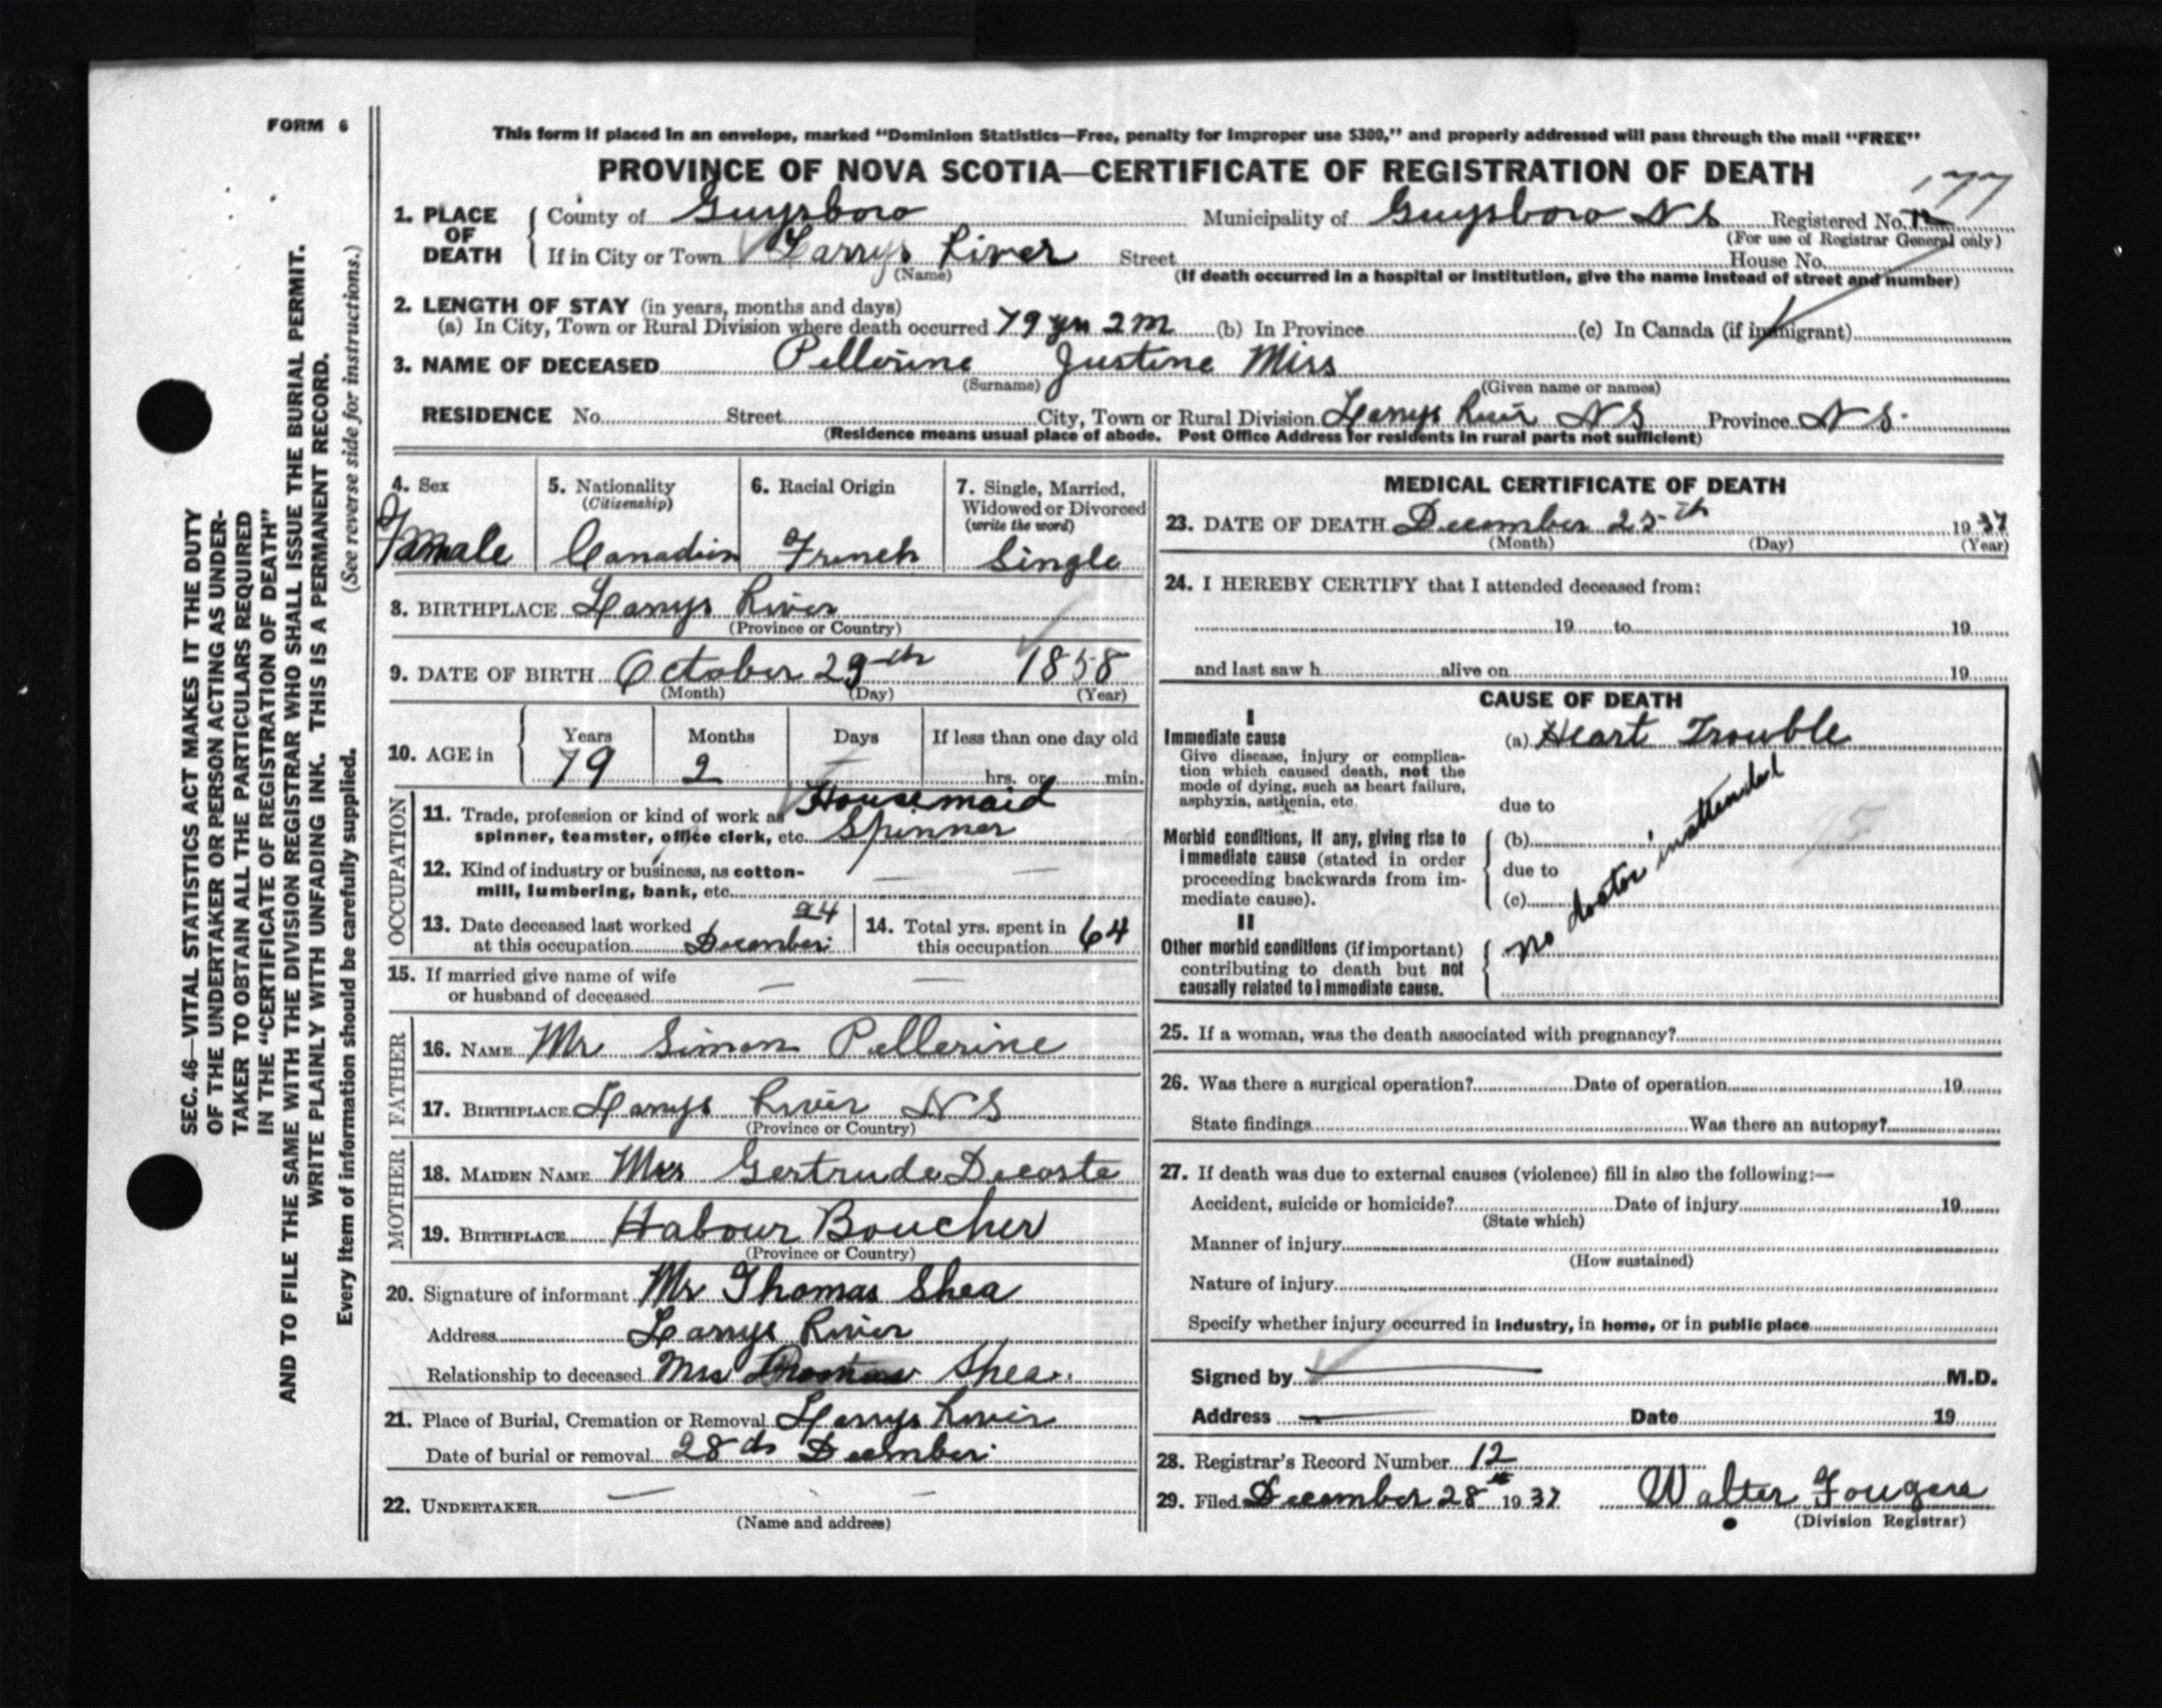 FORM 6
This form if placed in an envelope, marked "Dominion Statistics—Free, penalty for improper use $300," and properly addressed will pass through the mail "FREE"
PROVINCE OF NOVA SCOTIA—CERTIFICATE OF REGISTRATION OF DEATH
177
1. PLACE OF DEATH { County of Guysboro Municipality of Guysboro N S Registered No. 12
(For use of Registrar General only)
If in City or Town Larrys River Street House No.
(Name) (If death occurred in a hospital or institution, give the name instead of street and number)
2. LENGTH OF STAY (in years, months and days)
(a) In City, Town or Rural Division where death occurred 79 yrs 2 m (b) In Province (c) In Canada (if immigrant)
3. NAME OF DECEASED Pellerine Justine Miss
(Surname) (Given name or names)
RESIDENCE No. Street City, Town or Rural Division Larrys River N S Province N S.
(Residence means usual place of abode. Post Office Address for residents in rural parts not sufficient)
4. Sex
Famale
5. Nationality
(Citizenship)
Canadien
6. Racial Origin
French
7. Single, Married,
Widowed or Divorced
(write the word)
Single
8. BIRTHPLACE Larrys River
(Province or Country)
9. DATE OF BIRTH October 29th 1858
(Month) (Day) (Year)
10. AGE in { Years Months Days If less than one day old
79 2 hrs. or min.
OCCUPATION
11. Trade, profession or kind of work as Housemaid
spinner, teamster, office clerk, etc. Spinner
12. Kind of industry or business, as cotton-
mill, lumbering, bank, etc.
13. Date deceased last worked 24
at this occupation December
14. Total yrs. spent in
this occupation 64
15. If married give name of wife
or husband of deceased
FATHER
16. NAME Mr Simon Pellerine
17. BIRTHPLACE Larrys River N S
(Province or Country)
MOTHER
18. MAIDEN NAME Mrs Gertrude Decoste
19. BIRTHPLACE Habour Boucher
(Province or Country)
20. Signature of informant Mr Thomas Shea
Address Larrys River
Relationship to deceased Mrs Thomas Shea
21. Place of Burial, Cremation or Removal Larrys River
Date of burial or removal 28th December
22. UNDERTAKER
(Name and address)
MEDICAL CERTIFICATE OF DEATH
23. DATE OF DEATH December 25th 1937
(Month) (Day) (Year)
24. I HEREBY CERTIFY that I attended deceased from:
19 to 19
and last saw h alive on 19
CAUSE OF DEATH
I
Immediate cause (a) Heart Trouble
Give disease, injury or complica-
tion which caused death, not the
mode of dying, such as heart failure,
asphyxia, asthenia, etc.
due to
Morbid conditions, if any, giving rise to { (b)
immediate cause (stated in order
proceeding backwards from im- due to
mediate cause). (c)
no doctor inattended
II
Other morbid conditions (if important) {
contributing to death but not
causally related to immediate cause.
25. If a woman, was the death associated with pregnancy?
26. Was there a surgical operation? Date of operation 19
State findings Was there an autopsy?
27. If death was due to external causes (violence) fill in also the following:—
Accident, suicide or homicide? Date of injury 19
(State which)
Manner of injury
(How sustained)
Nature of injury
Specify whether injury occurred in industry, in home, or in public place
Signed by M.D.
Address Date 19
28. Registrar's Record Number 12
29. Filed December 28th 1937 Walter Fougere
(Division Registrar)
SEC. 46—VITAL STATISTICS ACT MAKES IT THE DUTY
OF THE UNDERTAKER OR PERSON ACTING AS UNDER-
TAKER TO OBTAIN ALL THE PARTICULARS REQUIRED
IN THE "CERTIFICATE OF REGISTRATION OF DEATH"
AND TO FILE THE SAME WITH THE DIVISION REGISTRAR WHO SHALL ISSUE THE BURIAL PERMIT.
WRITE PLAINLY WITH UNFADING INK. THIS IS A PERMANENT RECORD.
Every item of information should be carefully supplied. (See reverse side for instructions.)